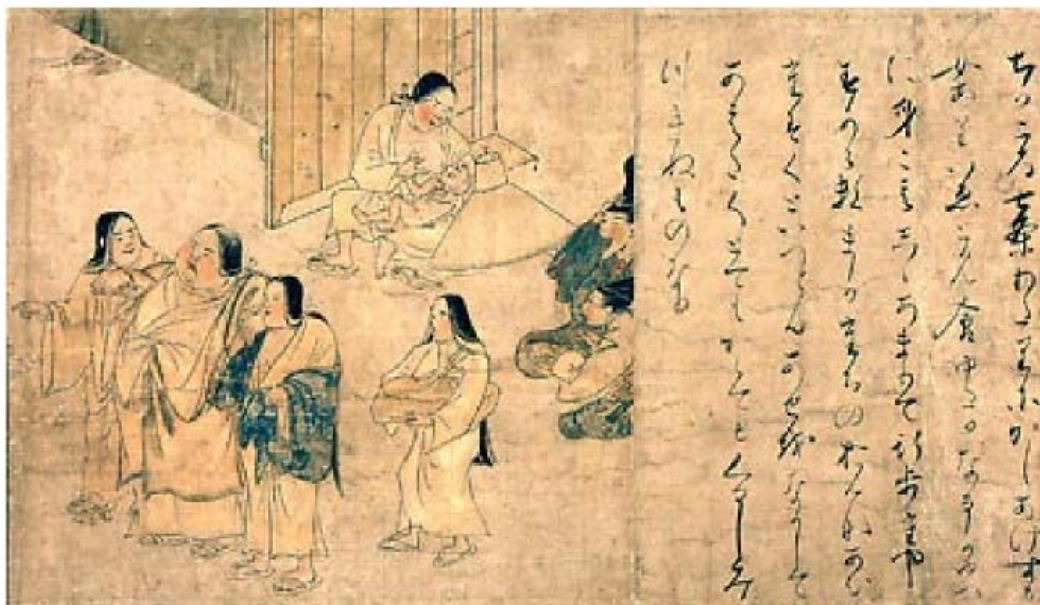 ちかころ七条わたりにかしあけする
女あり家とみ食ゆたかなるかゆへ
に身こえしゝあまりて行歩たや
すからすまかたちの女あひた
すくといへともあせをなかして
とてもかくてもくるしみ
つきぬものなり